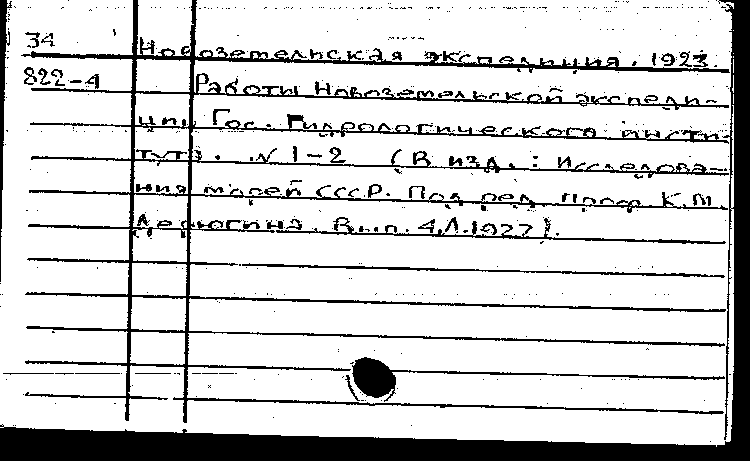 34 Новоземельская экспедиция. 1923.
822-4 Работы Новоземельской экспеди-
ции Гос. Гидрологического инсти-
тута. № 1-2 (В изд.: Исследова-
ния морей СССР. Под ред. проф К.М.
Дерюгина. Вып. 4, Л. 1927).